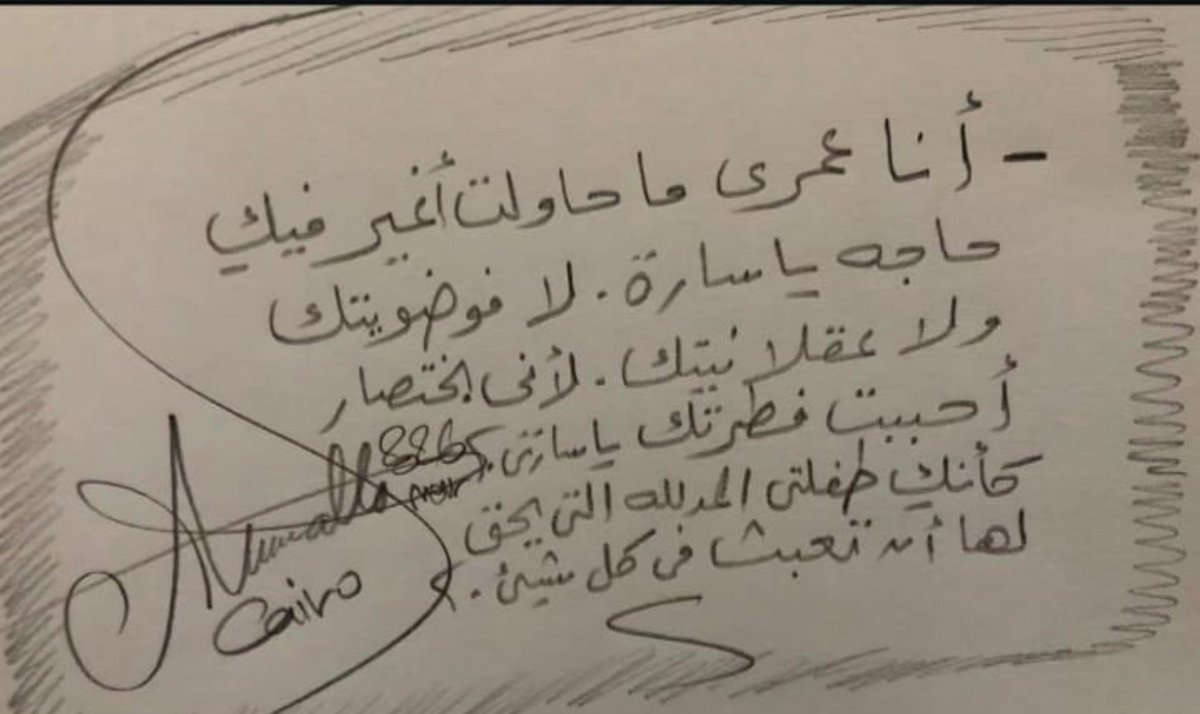 - أنا عمرى ما حاولت أغير فيكِ
حاجه يا سارة . لا فوضويتك
ولا عقلانيتك . لأنى بختصار
أحببت فطرتك يا سارتى .
كأنكِ طفلتى المدلله التى يحق
لها أن تعبث فى كل شيئ .
Cairo